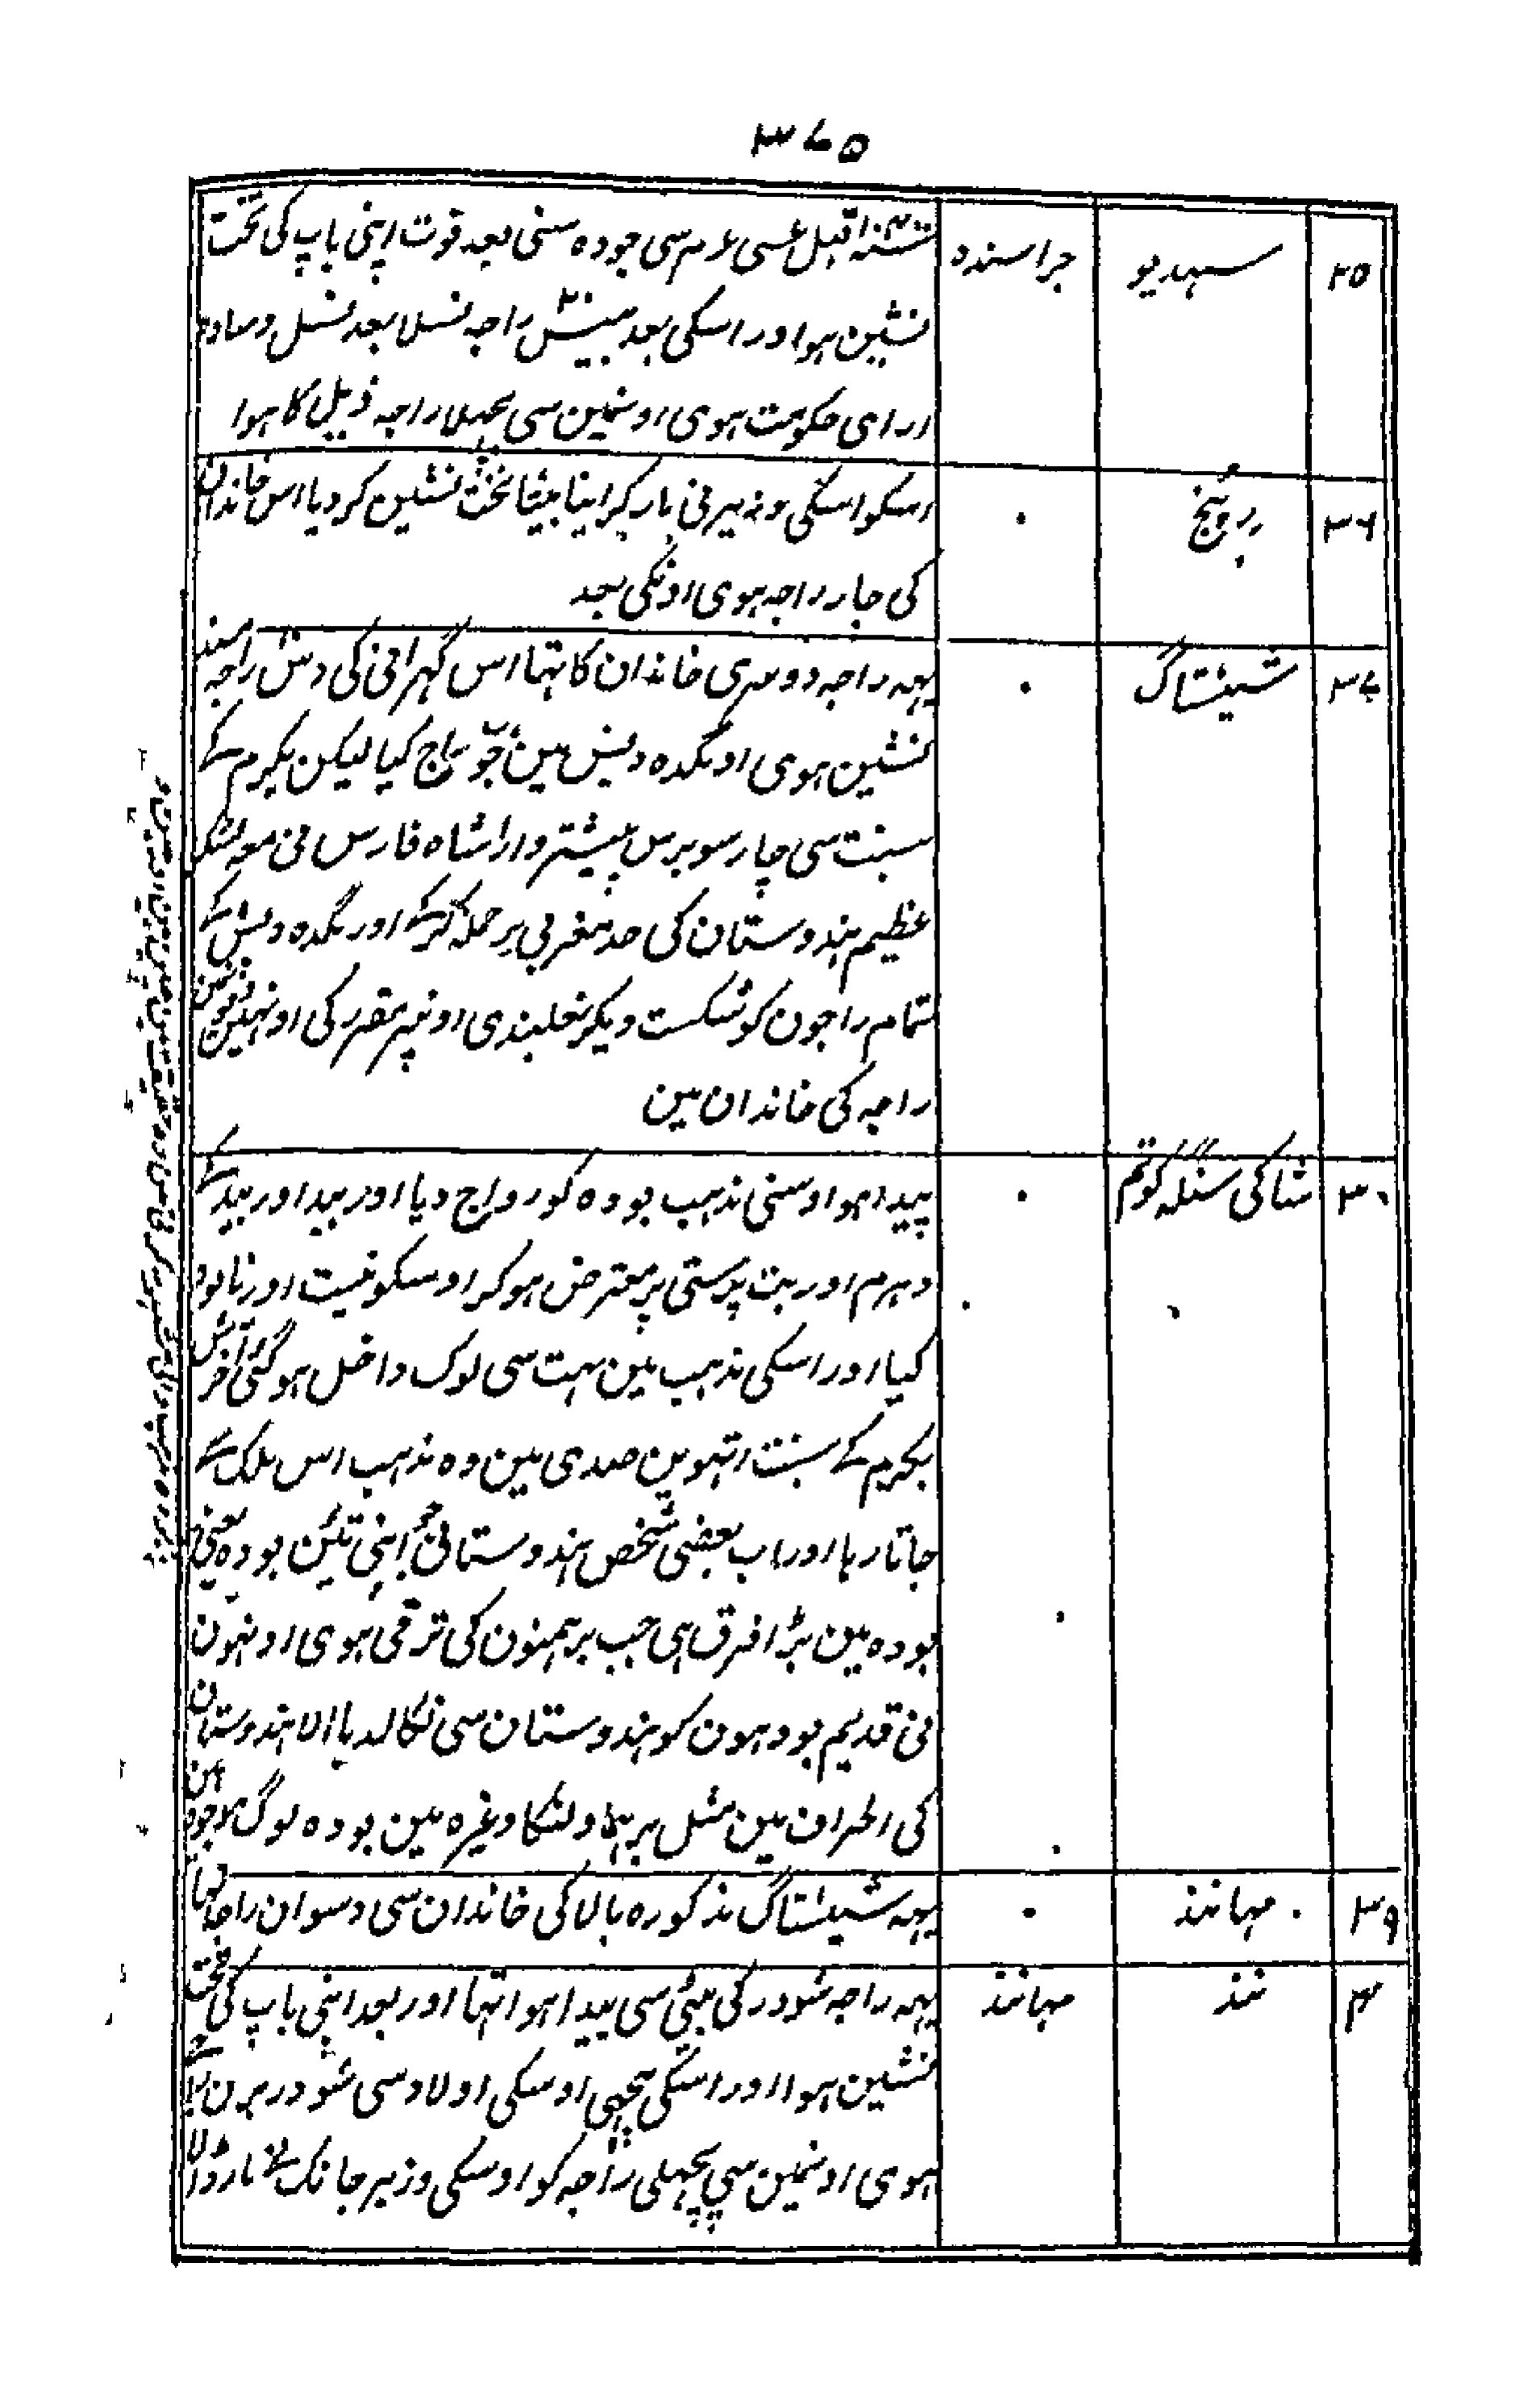 ۳۷۵
۳۵ سہدیو جراسندہ قبل عسی عرم سی جودہ سنی بعد فوت اپنی باپ کی تخت
نشین ہوا اور اسکی بعد راجہ نسلا بعد نسل وسادہ
ارای حکومت ہوی اونمین سی پچہلا راجہ ذیل کا ہوا
۳۶ رپونج ۰ اسکو اسکی وزیر نی مار کر اپنا بیٹا تخت نشین کر دیا اس خاندان
کی چار راجہ ہوی اونکی بعد
۳۷ شیشناگ ۰ یہہ راجہ دوسری خاندان کا تہا اس گہرانی کی دش راجہ مسند
نشین ہوی اور مگدہ دیش مین راج کیا لیکن بکرم کے
سبنت سی چار سو برس پیشتر دارا شاہ فارس نی معہ لشکر
عظیم ہندوستان کی حد مغربی پر حملہ کرکے اور مگدہ دیش کے
تمام راجون کو شکست دیکر نعلبندی اونپر مقرر کی اونہین دنون مین
راجہ کی خاندان مین
۳۸ شاکی سنگہ گوتم ۰ پیدا ہوا اوسنی مذہب بودہ کو رواج دیا اور بید اور بید کے
دہرم اور بت پرستی پر معترض ہوکر اوسکو نیست اور نابود
کیا اور اسکی مذہب مین بہت سی لوک داخل ہوگئی آخرش
بکرم کے سبنت اتہوین صدی مین وہ مذہب اس ملک سے
جاتا رہا اور اب بعضی شخص ہندوستانی اپنی تئین بودہ
بودہ مین بڑا فرق ہی جب برہمنون کی ترقی ہوی اونہون
نی قدیم بودہون کو ہندوستان سی نکالدیا الا ہندوستان
کی اطراف مین مثل برہما ولنکا وغیرہ مین بودہ لوگ موجود ہین
۳۹ مہانند ۰ یہہ شیشناگ مذکورہ بالا کی خاندان سی دسوان راجہ تہا
۴۰ نند مہانند یہہ راجہ شودر کی بیٹی سی پیدا ہوا تہا اور بعد اپنی باپ کی تخت
نشین ہوا اور اسکی پیچہی اوسکی اولاد سی شودر برن
ہوی اونمین سی پچہلی راجہ کو اوسکی وزیر جانک نے مار ڈالا